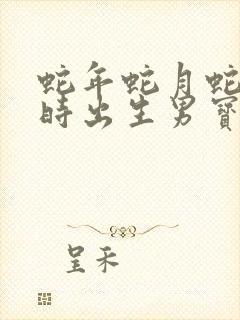 蛇年蛇月蛇
时出生男寶
呈禾